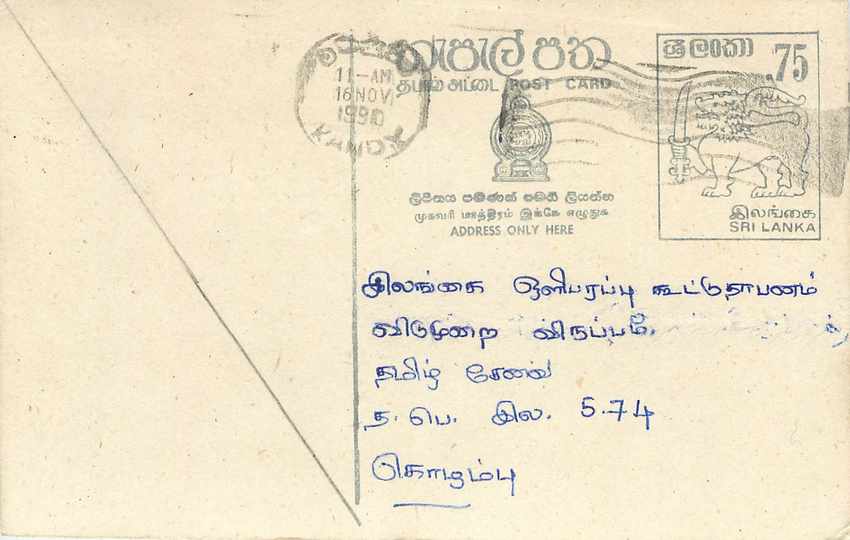 11-AM
16 NOV
1990
KANDY
තැපැල් පත
தபால் அட்டை POST CARD
ශ්‍රී ලංකා 75
ලිපිනය පමණක් මෙහි ලියන්න
முகவரி மாத்திரம் இங்கே எழுதுக
ADDRESS ONLY HERE
இலங்கை
SRI LANKA
இலங்கை ஒளிபரப்பு கூட்டுதாபனம்
விடுமுறை விருப்பம்.
தமிழ் சேவை
த. பெ. இல. 574
கொழம்பு